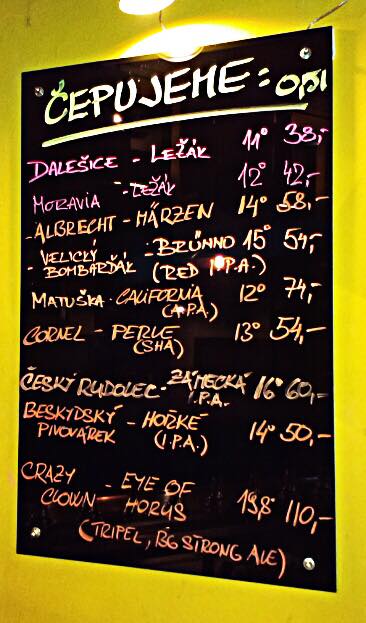 ČEPUJEME: 0,5l
DALEŠICE - LEŽÁK 11° 38,-
MORAVIA - LEŽÁK 12° 42,-
- ALBRECHT - MÄRZEN 14° 58,-
- VELICKÝ BOMBARĎÁK - BRÜNNO 15° 54,-
(RED I.P.A.)
MATUŠKA - CALIFORNIA 12° 74,-
(A.P.A.)
CORNEL - PERLE 13° 54,-
(SHA)
ČESKÝ RUDOLEC - ZÁMECKÁ 16° 60,-
I.P.A.
BESKYDSKÝ PIVOVÁREK - HOŘKÉ 14° 50,-
(I.P.A.)
CRAZY CLOWN - EYE OF HORUS 19,8° 110,-
(TRIPEL, BG STRONG ALE)